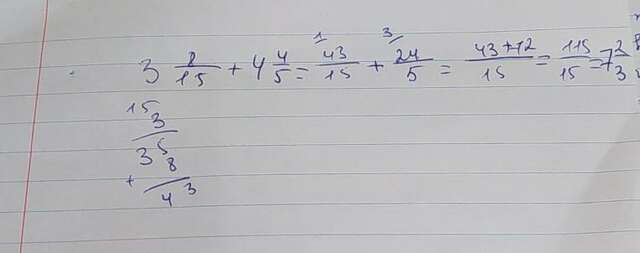 3 8/15 + 4 4/5 = 43/15 + 24/5 = 43+72/15 = 115/15 = 7 2/3
1 3
15
3
35
8
+
43